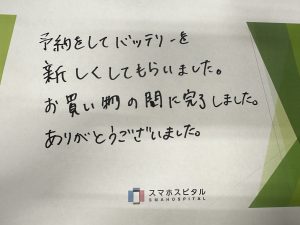 予約をしてバッテリーを
新しくしてもらいました。
お買い物の間に完了しました。
ありがとうございました。
スマホスピタル
SMAHOSPITAL